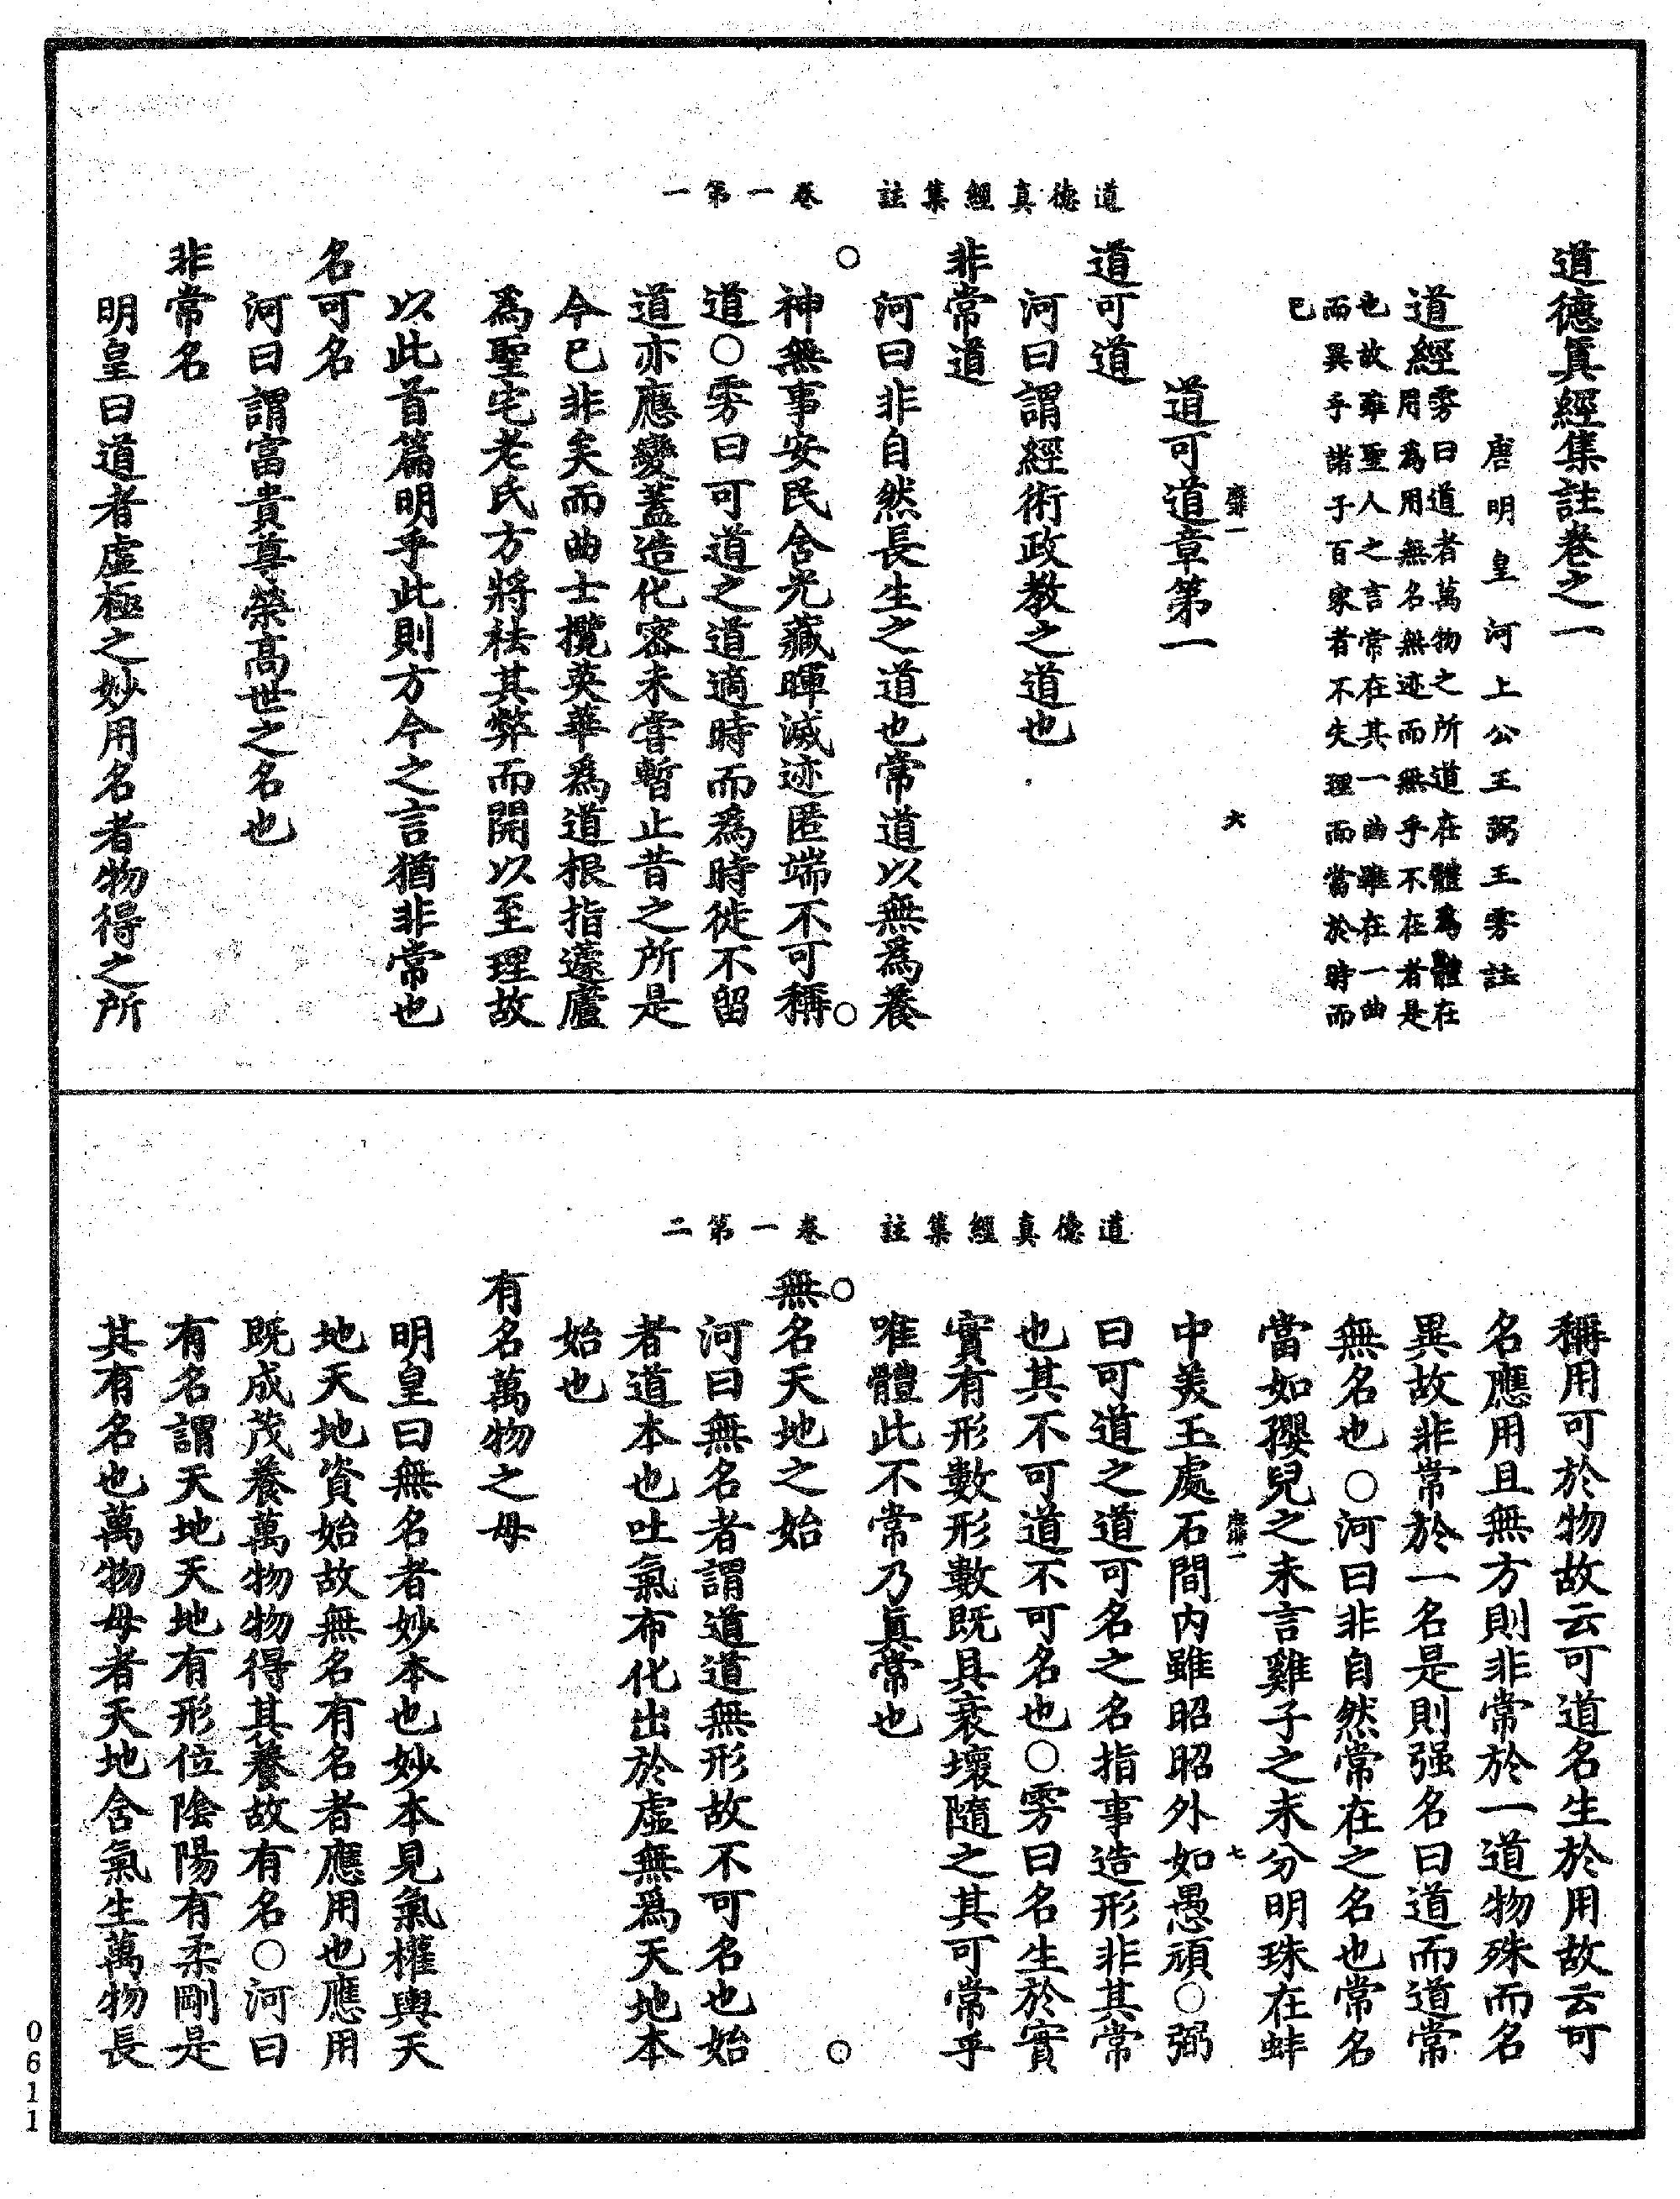 道德真經集註　卷一第一
道德真經集註卷之一
唐明皇河上公王弼王雱註
道經雱曰道者萬物之所道在體爲體在
用爲用無名無迹而無乎不在者是
也故雖聖人之言常在其一曲雖在一曲
而異乎諸子百家者不失理而當於時而
已
靡一　六
道可道章第一
道可道
河曰謂經術政教之道也
非常道
河曰非自然長生之道也常道以無爲養
神無事安民含光藏暉滅迹匿端不可稱
道○雱曰可道之道適時而爲時徙不留
道亦應變蓋造化密未嘗暫止昔之所是
今已非矣而曲士攬英華爲道根指蘧廬
爲聖宅老氏方將祛其弊而開以至理故
以此首篇明乎此則方今之言猶非常也
名可名
河曰謂富貴尊榮高世之名也
非常名
明皇曰道者虛極之妙用名者物得之所
道德真經集註　卷一第二
稱用可於物故云可道名生於用故云可
名應用且無方則非常於一道物殊而名
異故非常於一名是則强名曰道而道常
無名也○河曰非自然常在之名也常名
當如孾兒之未言雞子之未分明珠在蚌
靡一　七
中美玉處石間内雖昭昭外如愚頑○弼
曰可道之道可名之名指事造形非其常
也其不可道不可名也○雱曰名生於實
實有形數形數既具衰壞隨之其可常乎
唯體此不常乃真常也
無名天地之始
河曰無名者謂道道無形故不可名也始
者道本也吐氣布化出於虛無爲天地本
始也
有名萬物之母
明皇曰無名者妙本也妙本見氣權輿天
地天地資始故無名有名者應用也應用
既成茂養萬物物得其養故有名○河曰
有名謂天地天地有形位陰陽有柔剛是
其有名也萬物母者天地含氣生萬物長
0611